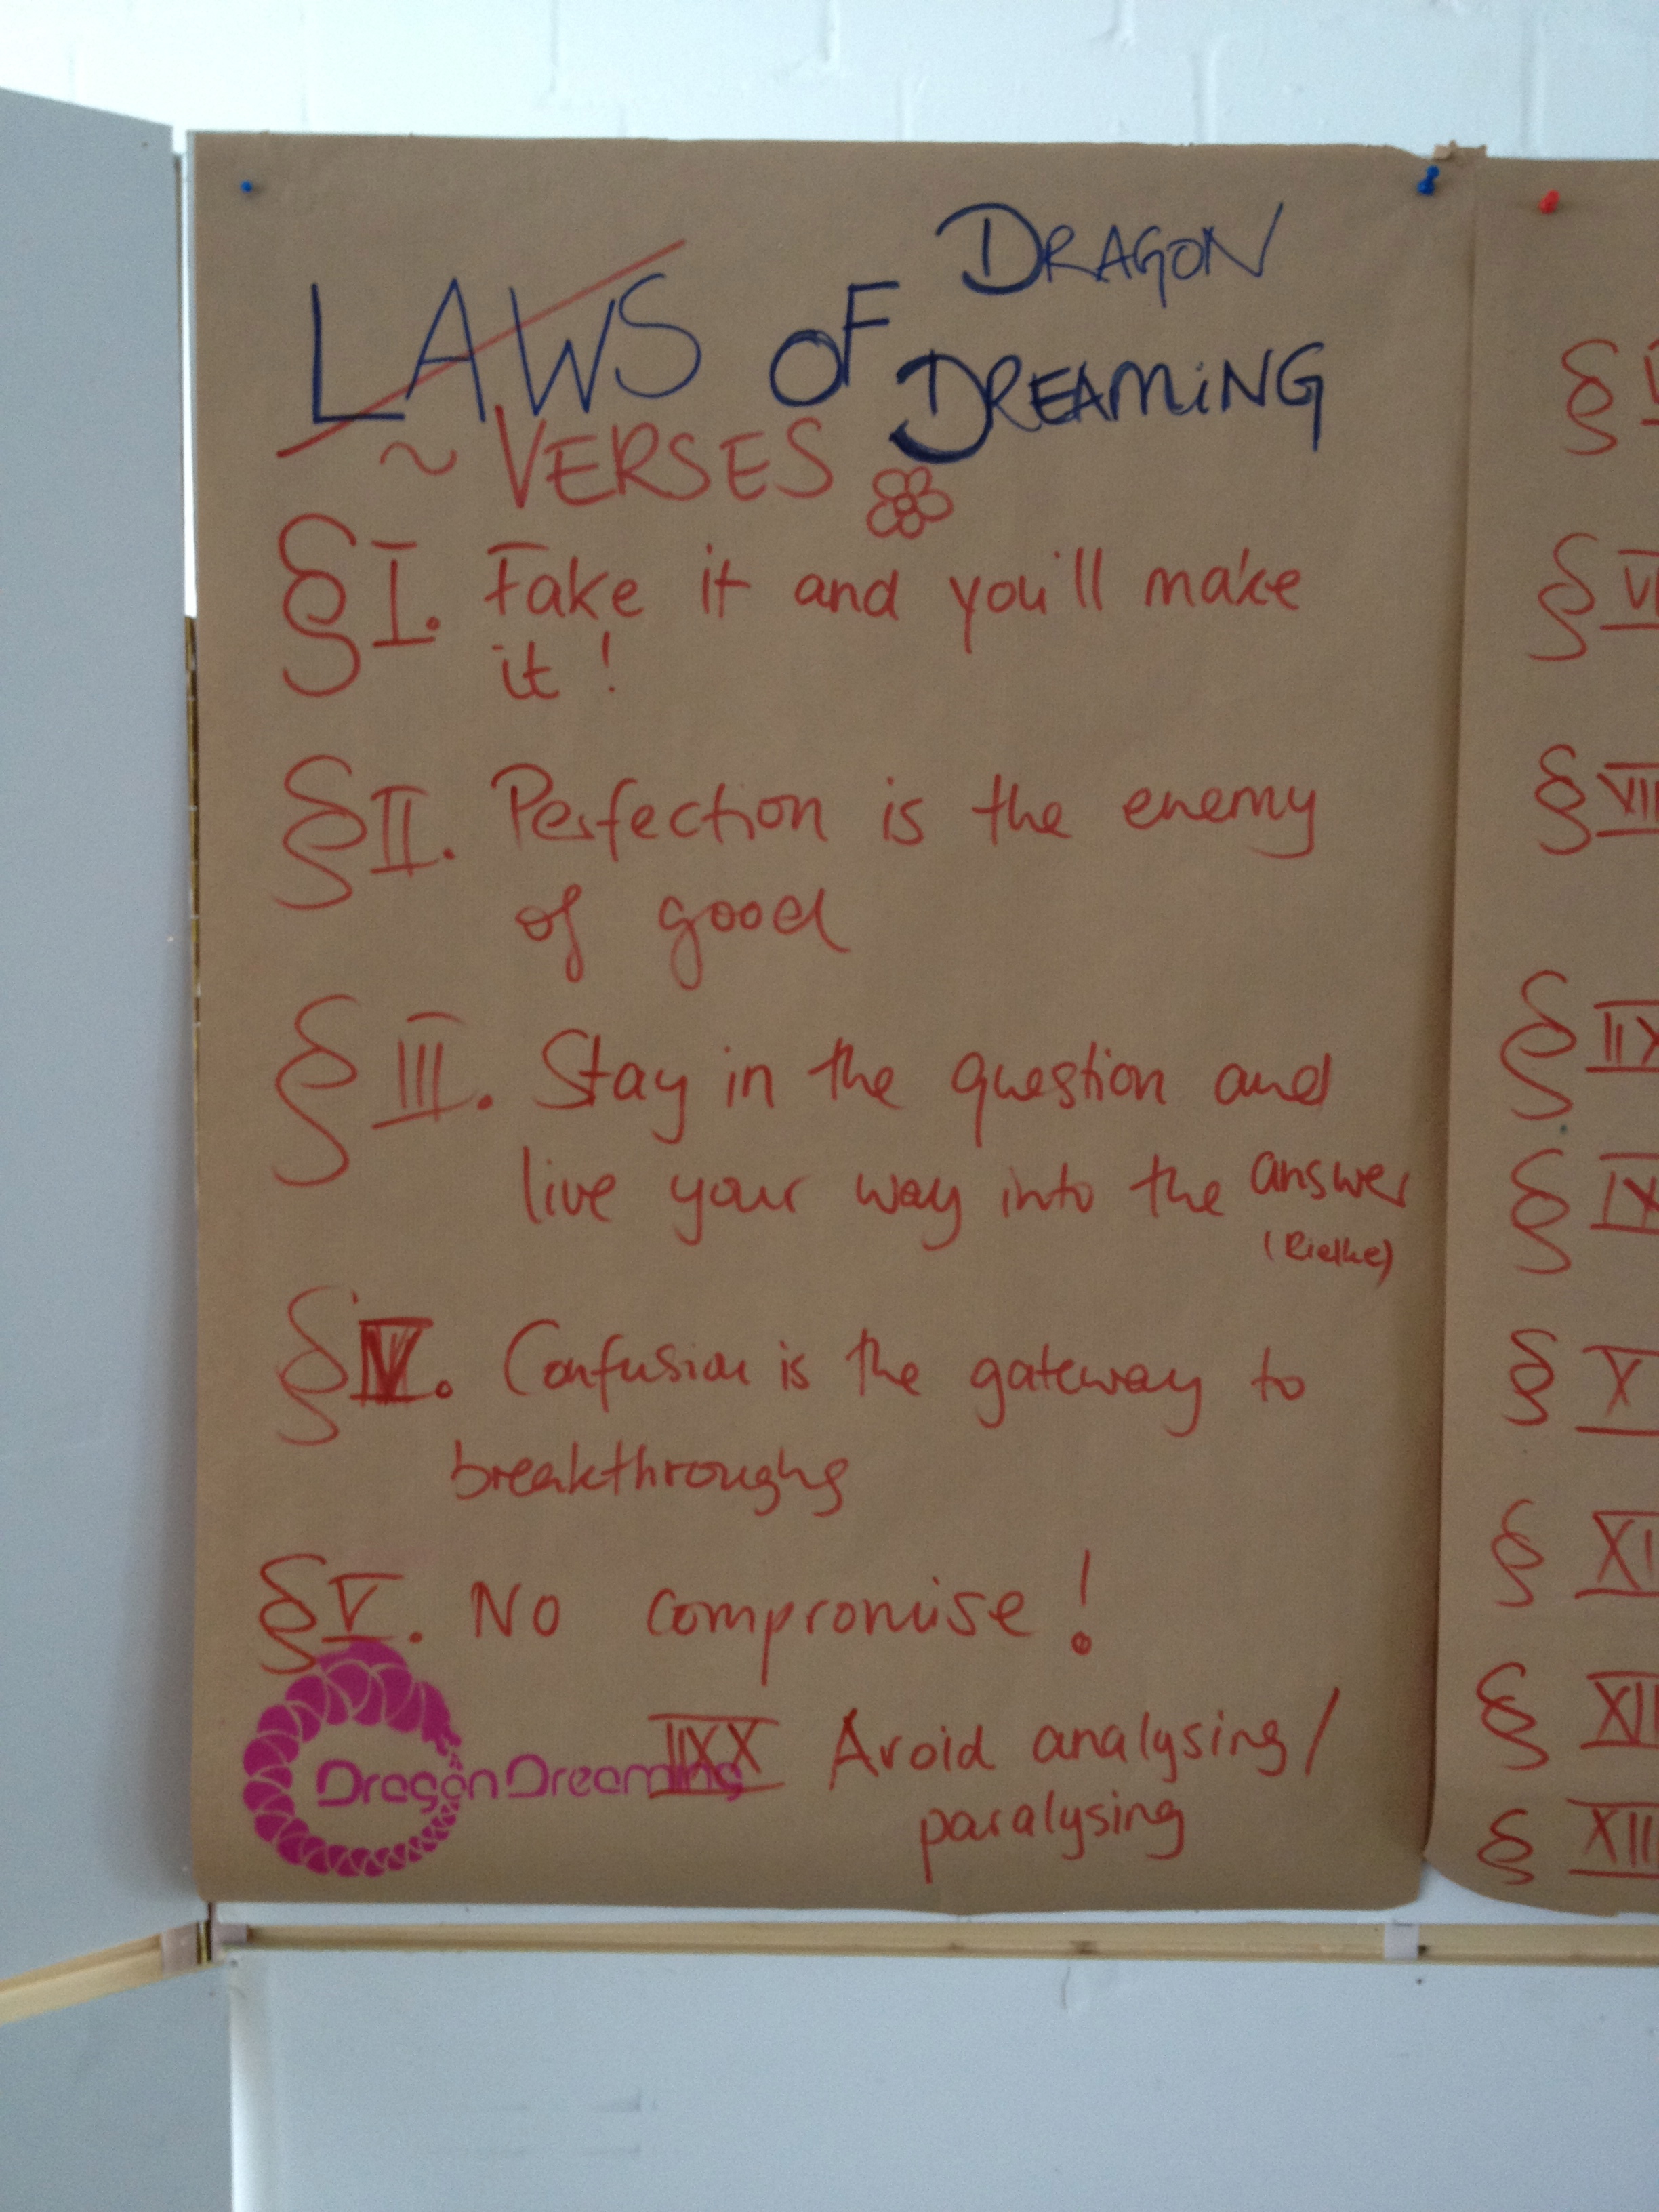 LAWS OF DRAGON
DREAMING
~ VERSES
§ I. Fake it and you'll make
it !
§ II. Perfection is the enemy
of good
§ III. Stay in the question and
live your way into the answer
(Rielke)
§ IV. Confusion is the gateway to
breakthroughs
§ V. No compromise !
Dragon Dreaming
IIXX Avoid analysing /
paralysing
§
§ VI
§ VII
§ IIX
§ IX
§ X
§ XI
§ XII
§ XIII